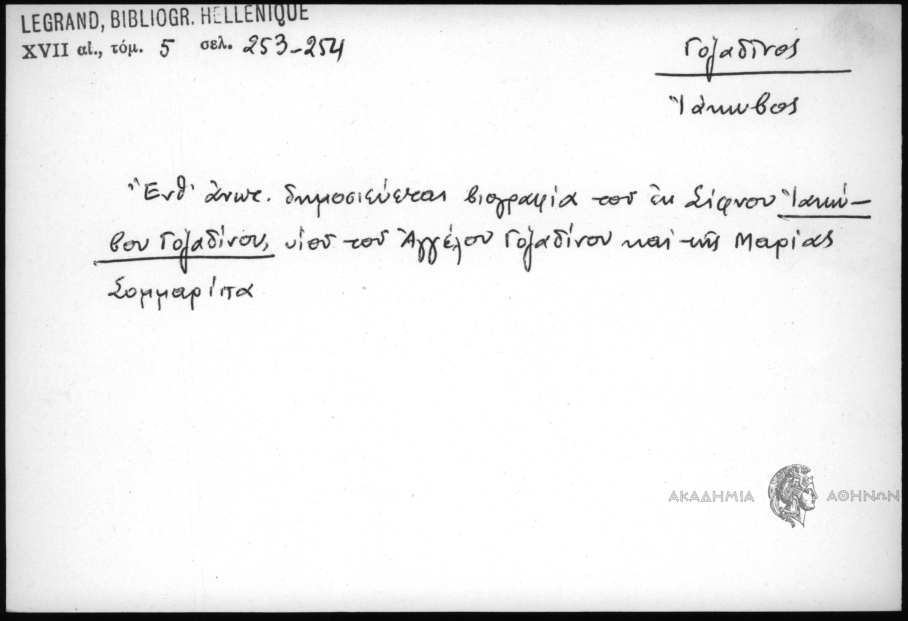 LEGRAND, BIBLIOGR. HELLENIQUE
XVII αἰ., τόμ. 5 σελ. 253-254
Γοζαδῖνος
Ἰάκωβος
Ἔνθ' ἀνωτ. δημοσιεύεται βιογραφία τοῦ ἐκ Σίφνου Ἰακώ-
βου Γοζαδίνου, υἱοῦ τοῦ Ἀγγέλου Γοζαδίνου καὶ τῆς Μαρίας
Σομμαρίπα
ΑΚΑΔΗΜΙΑ ΑΘΗΝΩΝ